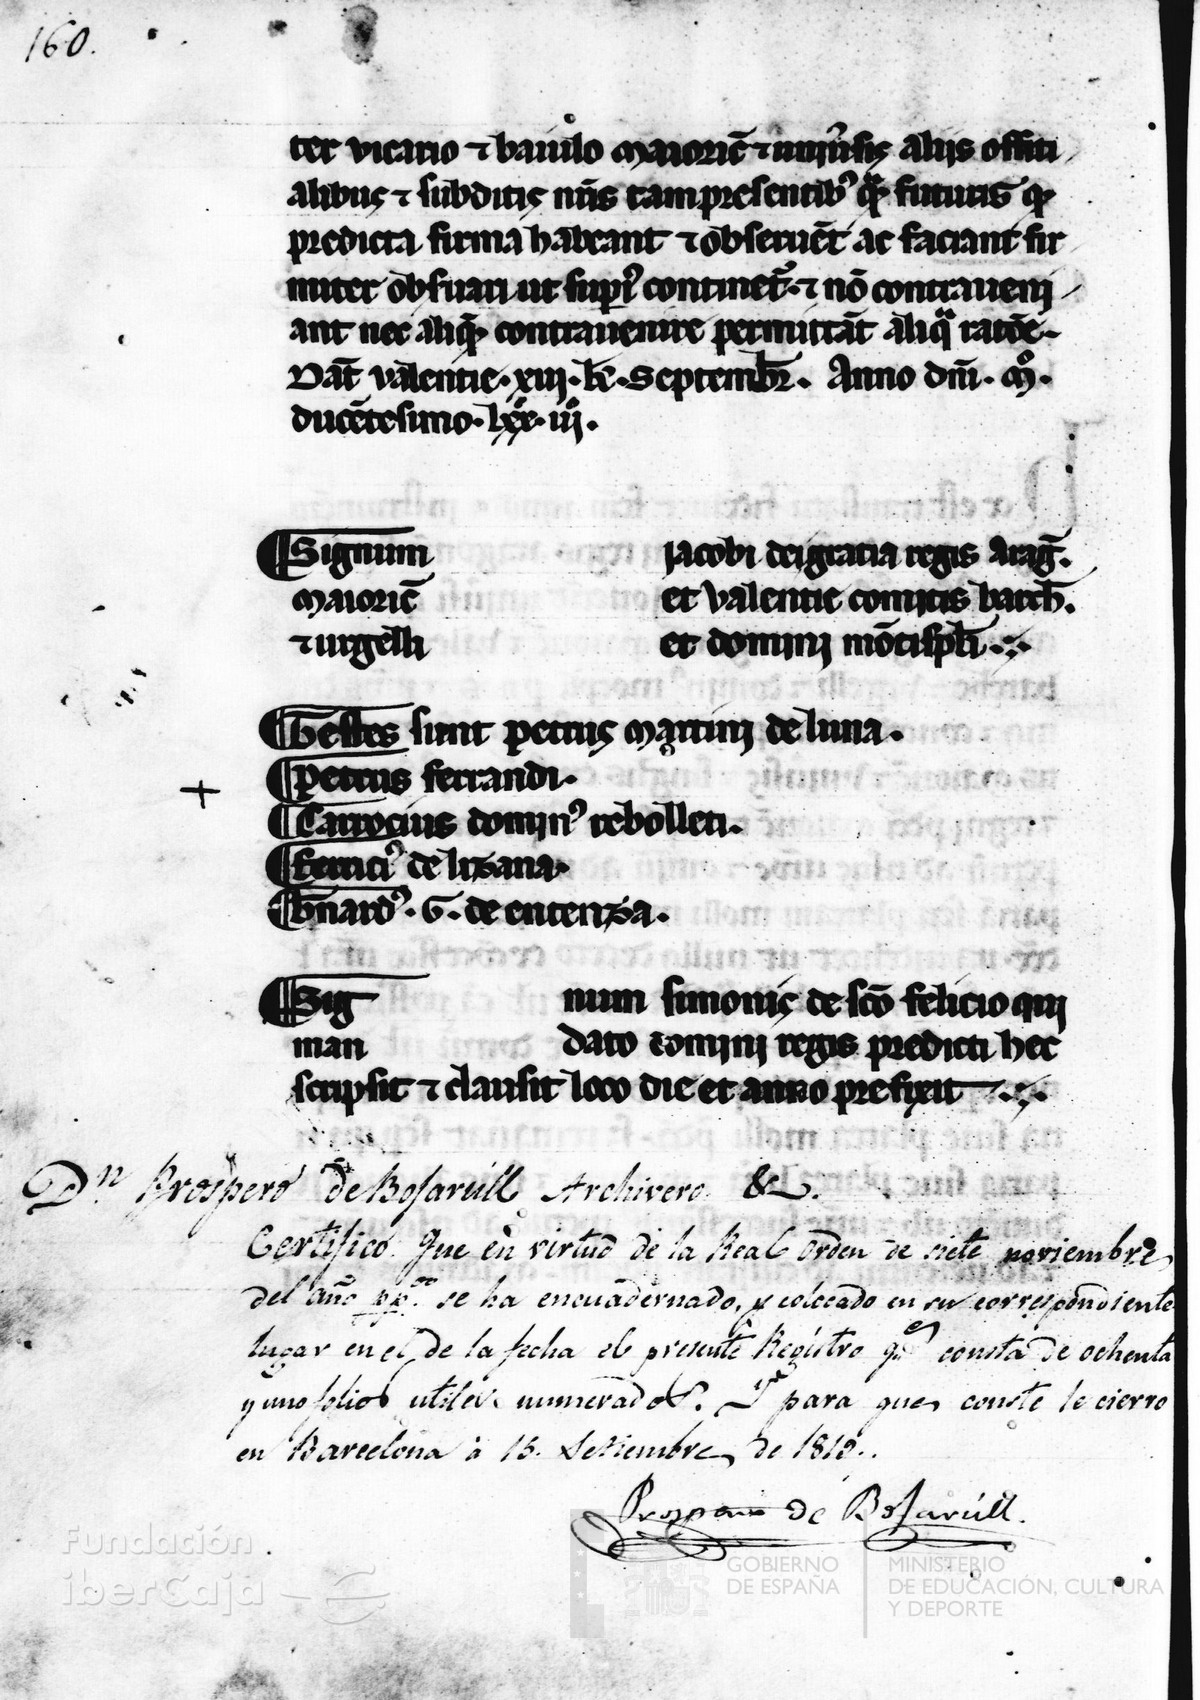 160.
ter vicario ⁊ baiulo maioric̄ ⁊ uniűsis aliis offici
alibus ⁊ subditis nr̄is tam presentib⁹ qͣm futuris qͦ
predicta firma habeant ⁊ obseruēt ac faciant fir
miter obs̄uari ut supͥ continet᷑ ⁊ nō contraueni
ant nec aliqͣ contrauenire permittāt aliqͣ racōe.
Dat̄ valentie. xiii. kl̄. Septembr̄. Anno dn̄i. mͦ.
ducētesimo. lxx. iii.
Signum iacobi dei gratia regis Araḡ.
maioric̄ et valentie comitis barch̄.
⁊ urgelli et domini mōtispl̄i
Testes sunt petrus martini de luna.
Petrus ferrandi.
Carrocius domin⁹ rebolleti.
ferrici⁹ de lizana.
b̄nard⁹. G. de entenza.
Sig num simonis de sc̄o felicio qui
man dato domini regis predicti hec
scripsit ⁊ clausit loco die et anno prefixit
Dⁿ Prospero de Bofarúll Archivero &.
Certifico. Que en virtud de la Real Orden de siete noviembre
del año pp.ᵒ se ha encuadernado, y colocado en su correspondiente
lugar en el de la fecha el presente Registro qᵉ consta de ochenta
y uno folios utiles numerados. Y para que conste le cierro
en Barcelona à 15. Setiembre de 1819.
Prospero de Bofarúll.
Fundación
iberCaja
GOBIERNO
DE ESPAÑA
MINISTERIO
DE EDUCACIÓN, CULTURA
Y DEPORTE